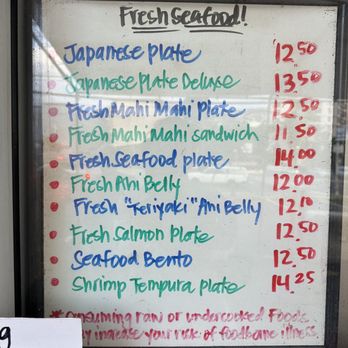 Fresh Seafood!
Japanese Plate 12.50
Japanese Plate Deluxe 13.50
Fresh Mahi Mahi Plate 12.50
Fresh Mahi Mahi sandwich 11.50
Fresh Seafood plate 14.00
Fresh Ahi Belly 12.00
Fresh "Teriyaki" Ahi Belly 12.10
Fresh Salmon Plate 12.50
Seafood Bento 12.50
Shrimp Tempura plate 14.25
* Consuming raw or undercooked Foods
increase your risk of foodborne illness.
g